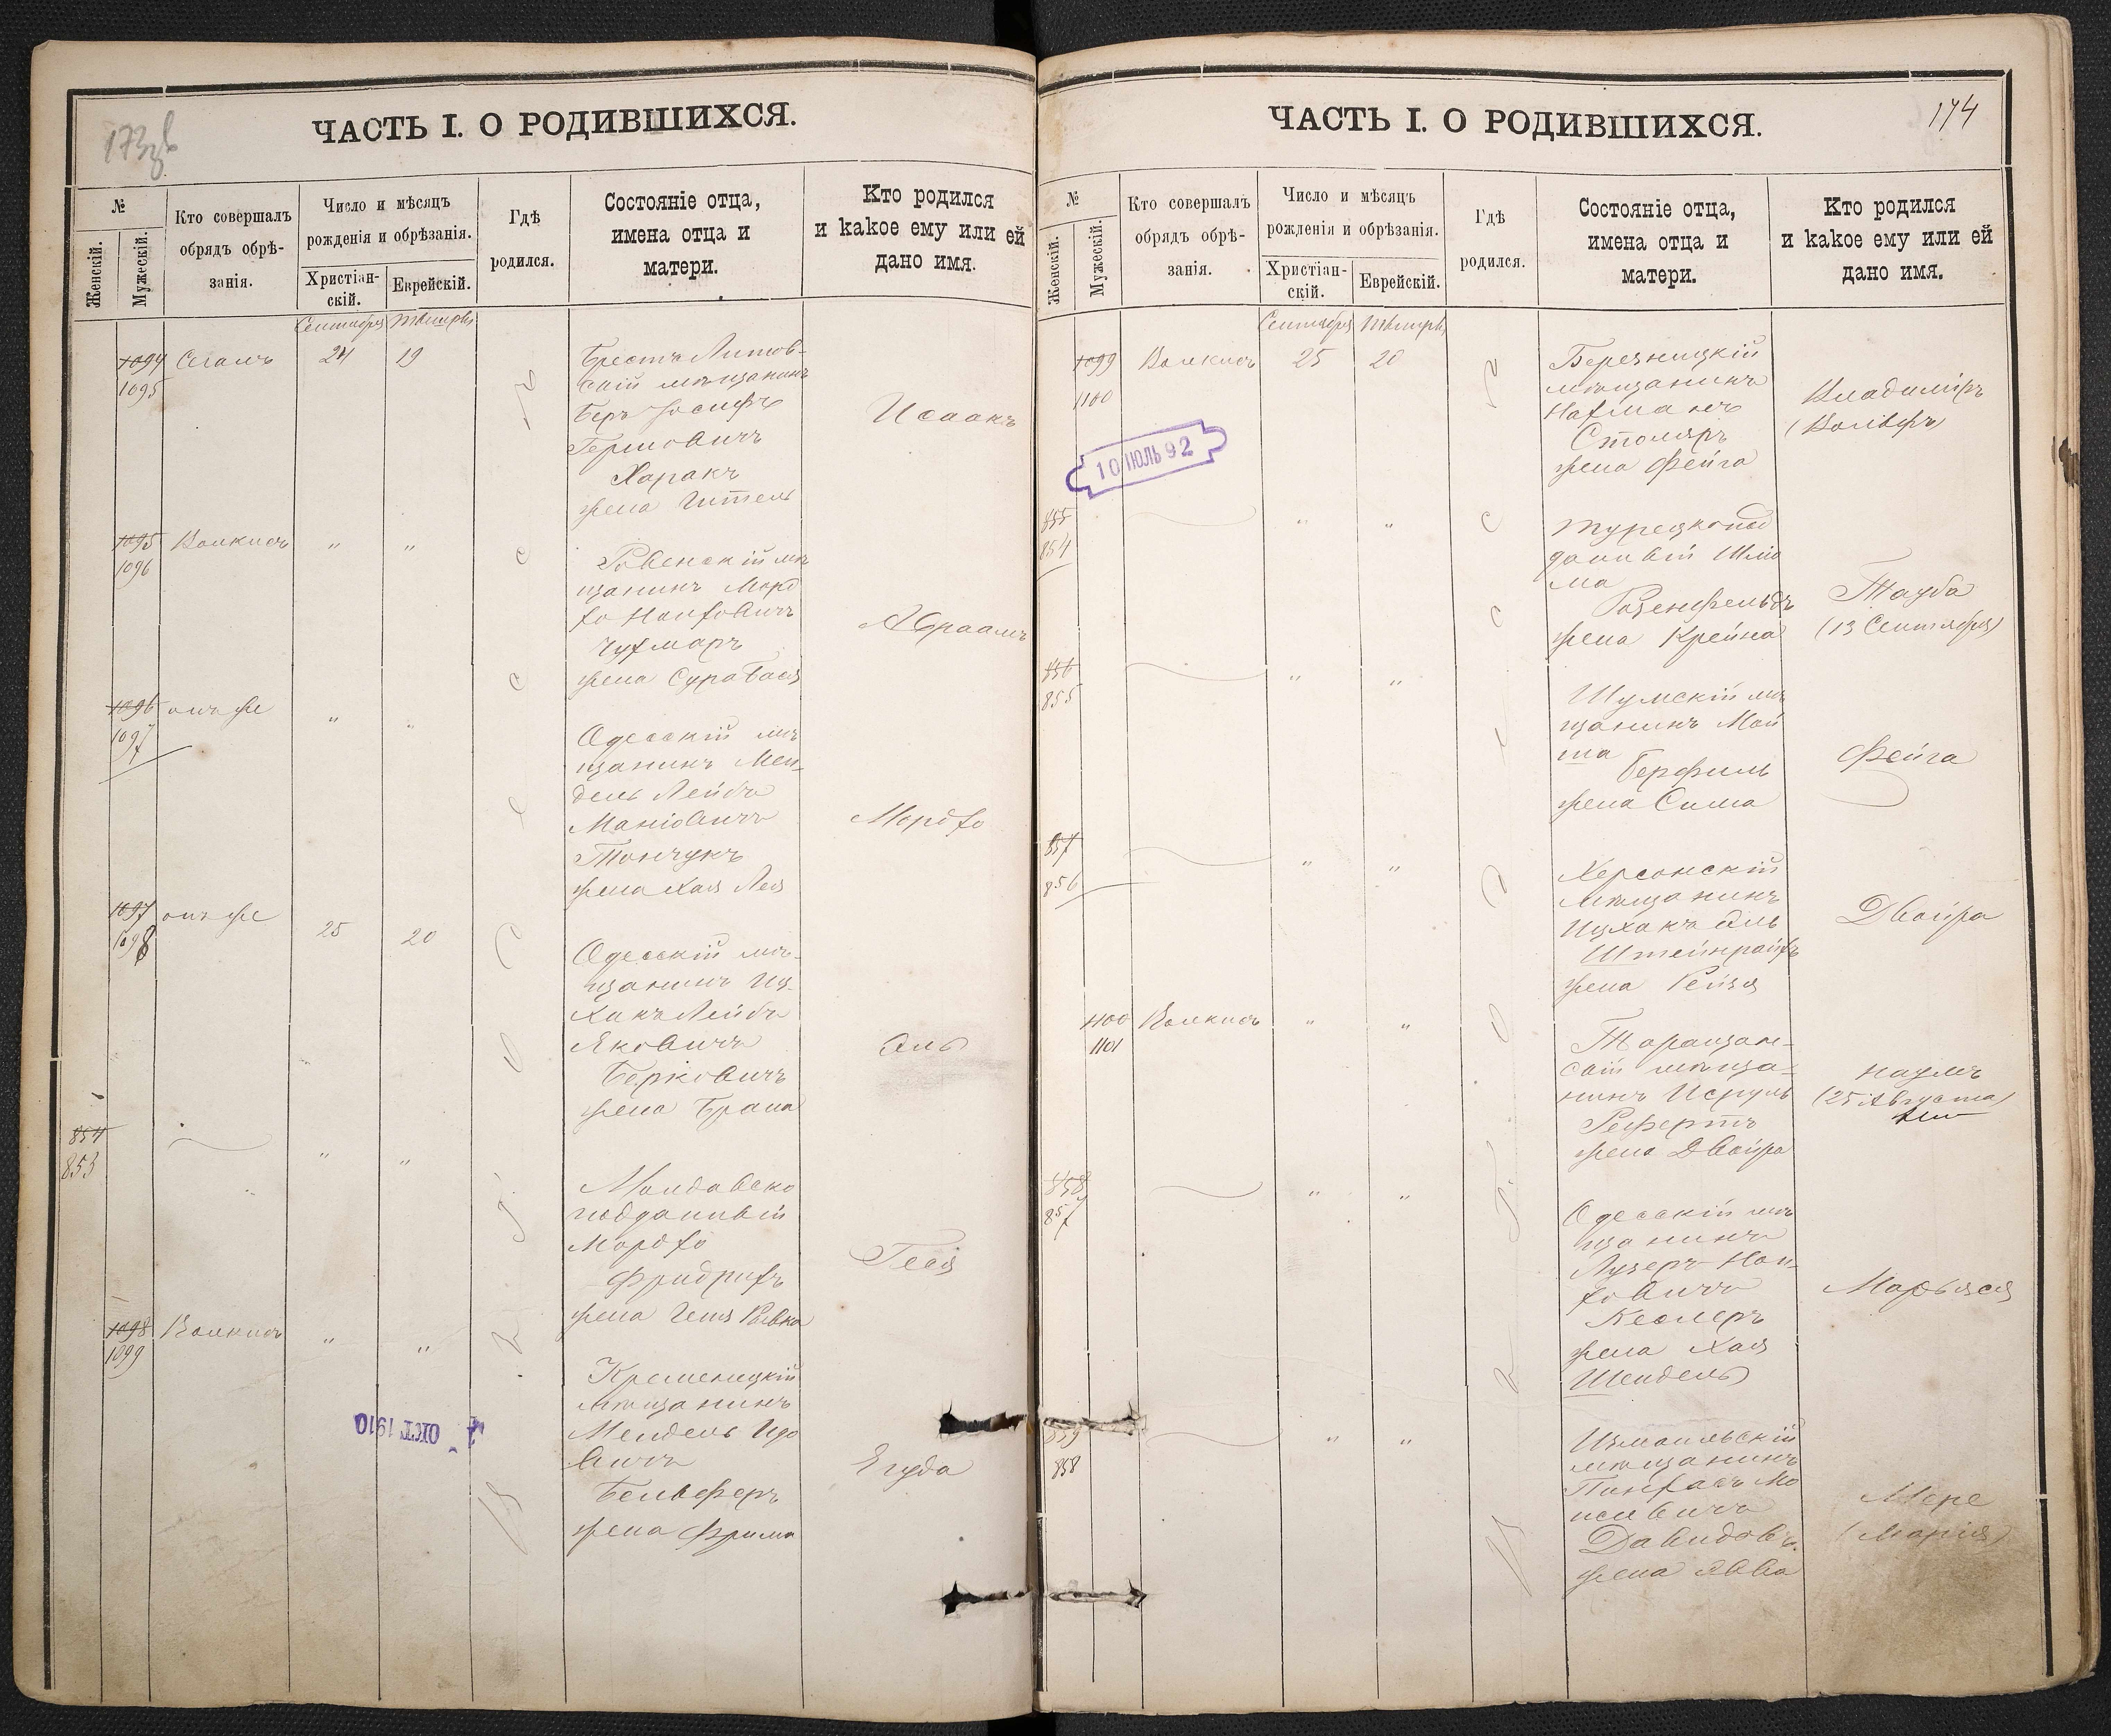 173 об
ЧАСТЬ I. О РОДИВШИХСЯ.
№
Женскій.
Мужескій.
Кто совершалъ
обрядъ обрѣ-
занія.
Число и мѣсяцъ
рожденія и обрѣзанія.
Христіан-
скій.
Еврейскій.
Гдѣ
родился.
Состояніе отца,
имена отца и
матери.
Кто родился
и какое ему или ей
дано имя.
Сентября
1094
1095
Сегалъ
24
19
Брестъ Литов-
скій мѣщанинъ
Беръ Іосифъ
Гершовичъ
Харакъ
жена Гитель
Исаакъ
1095
1096
Волкисъ
"
"
Ровенскій мѣ
щанинъ Морд
ко Ханковичъ
жена Сура Бася
Абраамъ
1096
1097
онъ же
"
"
Одесскій мѣ
щанинъ Мен-
дель Лейба
Маніовичъ
Тончукъ
жена Хая Лея
Мордко
1097
1098
онъ же
25
20
Одесскій мѣ-
щанинъ Иц-
хакъ Лейбъ
Яковичъ
Берковичъ
жена Брана
Эль
854
853
"
"
Молдавско
подданный
Мордко
Фридрихъ
жена Геня Ривка
Гася
1098
1099
Волкисъ
"
"
Кременецкій
мѣщанинъ
Мендель Идо
вичъ
Бельферъ
жена Фрима
Егуда
ОКТ 1910
174
ЧАСТЬ I. О РОДИВШИХСЯ.
№
Женскій.
Мужескій.
Кто совершалъ
обрядъ обрѣ-
занія.
Число и мѣсяцъ
рожденія и обрѣзанія.
Христіан-
скій.
Еврейскій.
Гдѣ
родился.
Состояніе отца,
имена отца и
матери.
Кто родился
и какое ему или ей
дано имя.
Сентября
1099
1100
Волкисъ
25
20
Березницкій
мѣщанинъ
Нахманъ
Столяръ
жена Фейга
Владиміръ
(Вольфъ)
10 ІЮЛЬ 92
855
854
"
"
Турецкопод
данный Шло
ма
Розенфельдъ
жена Крейна
Тауба
(13 Сентября)
856
855
"
"
Шумскій мѣ
щанинъ Мой
ша
Берфиль
жена Сима
Фейга
857
856
"
"
Херсонскій
мѣщанинъ
Ицхакъ Эль
Штейнрайхъ
жена Рейзя
Двойра
1100
1101
Волкисъ
"
"
Таращан-
скій мѣща-
нинъ Исруль
Рефертъ
жена Двойра
Наумъ
(25 Августа)
858
857
"
"
Одесскій мѣ
щанинъ
Лузеръ Хан-
ковичъ
Кеслеръ
жена Хая
Шендель
Марьяся
859
858
"
"
Измаильскій
мѣщанинъ
Пинхасъ Мо
исевичъ
Давидовъ
жена Хава
Мере
(Марія)